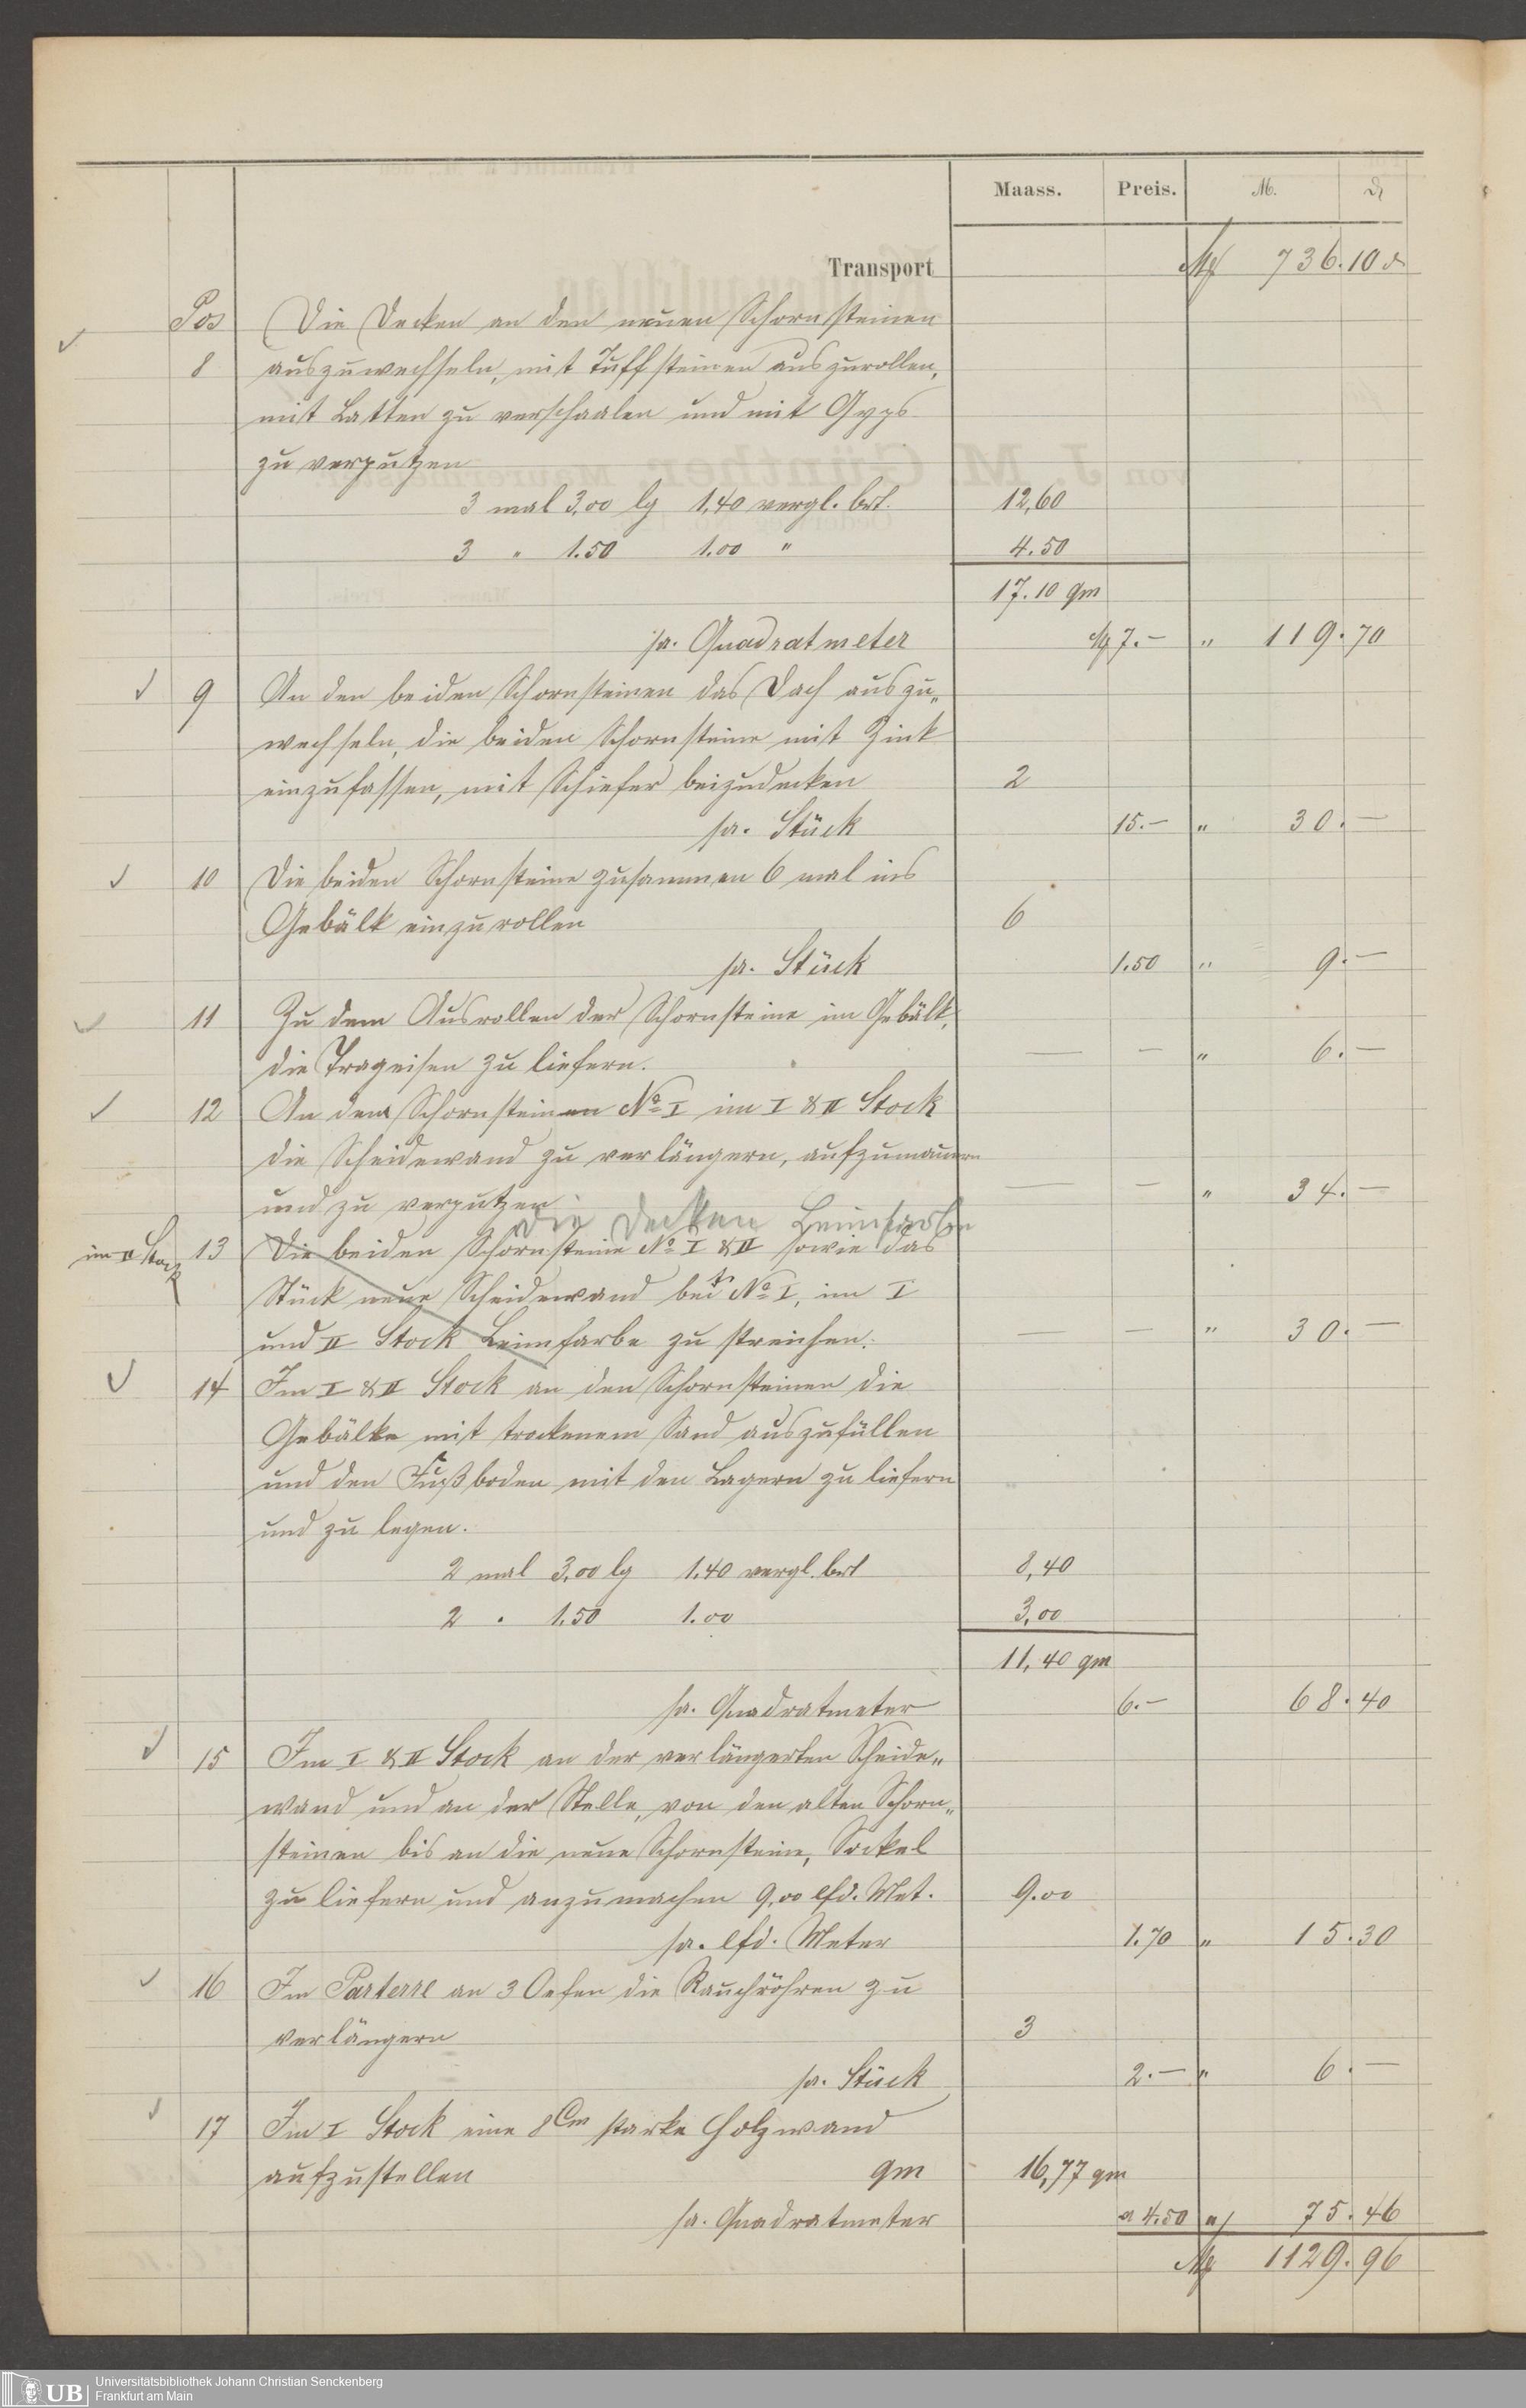 Maass. Preis. M. ₰
Transport M 736.10 ₰
Pos Die Decken an den neuen Schornsteinen
8 auszuwechseln, mit Tuffsteinen auszurollen,
mit Latten zu verschaalen und mit Gyps
zu verputzen
3 mal 3,00 lg 1,40 vergl. brt. 12,60
3 " 1.50 1.00 " 4.50
17.10 qm
pr. Quadratmeter M 7.– " 119.70
9 An den beiden Schornsteinen das Dach auszu„
wechseln, die beiden Schornsteine mit Zink
einzufassen, mit Schiefer beizudecken 2
pr. Stück 15.– " 30.–
10 Die beiden Schornsteine zusammen 6 mal ins
Gebälk einzurollen 6
pr. Stück 1.50 " 9.–
11 Zu dem Ausrollen der Schornsteine im Gebälk,
die Trageisen zu liefern. — – " 6.–
12 An dem Schornsteinen No I im I & II Stock
die Scheidewand zu verlängern, aufzumauern
und zu verputzen — – " 34.–
die Decken Leimfarben
im II Stock 13 Die beiden Schornsteine No I & II sowie das
Stück neue Scheidewand bei No I, im I
und II Stock Leimfarbe zu streichen. — – " 30.–
14 Im I & II Stock an den Schornsteinen die
Gebälke mit trockenem Sand auszufüllen
und den Fußboden mit den Lagern zu liefern
und zu legen.
2 mal 3,00 lg 1.40 vergl. brt 8,40
2 " 1,50 1.00 3,00
11,40 qm
pr. Quadratmeter 6.– 68.40
15 Im I & II Stock an der verlängerten Scheide„
wand und an der Stelle, von den alten Schorn„
steinen bis an die neue Schornsteine, Sockel
zu liefern und anzumachen 9,00 lfd. Met. 9.00
pr. lfd. Meter 1.70 " 15.30
16 Im Parterre an 3 Oefen die Rauchröhren zu
verlängern 3
pr. Stück 2.– " 6.–
17 Im I Stock eine 8 Cm starke Holzwand
aufzustellen qm 16,77 qm
pr. Quadratmeter a 4.50 " 75.46
M 1129.96
UB Universitätsbibliothek Johann Christian Senckenberg
Frankfurt am Main